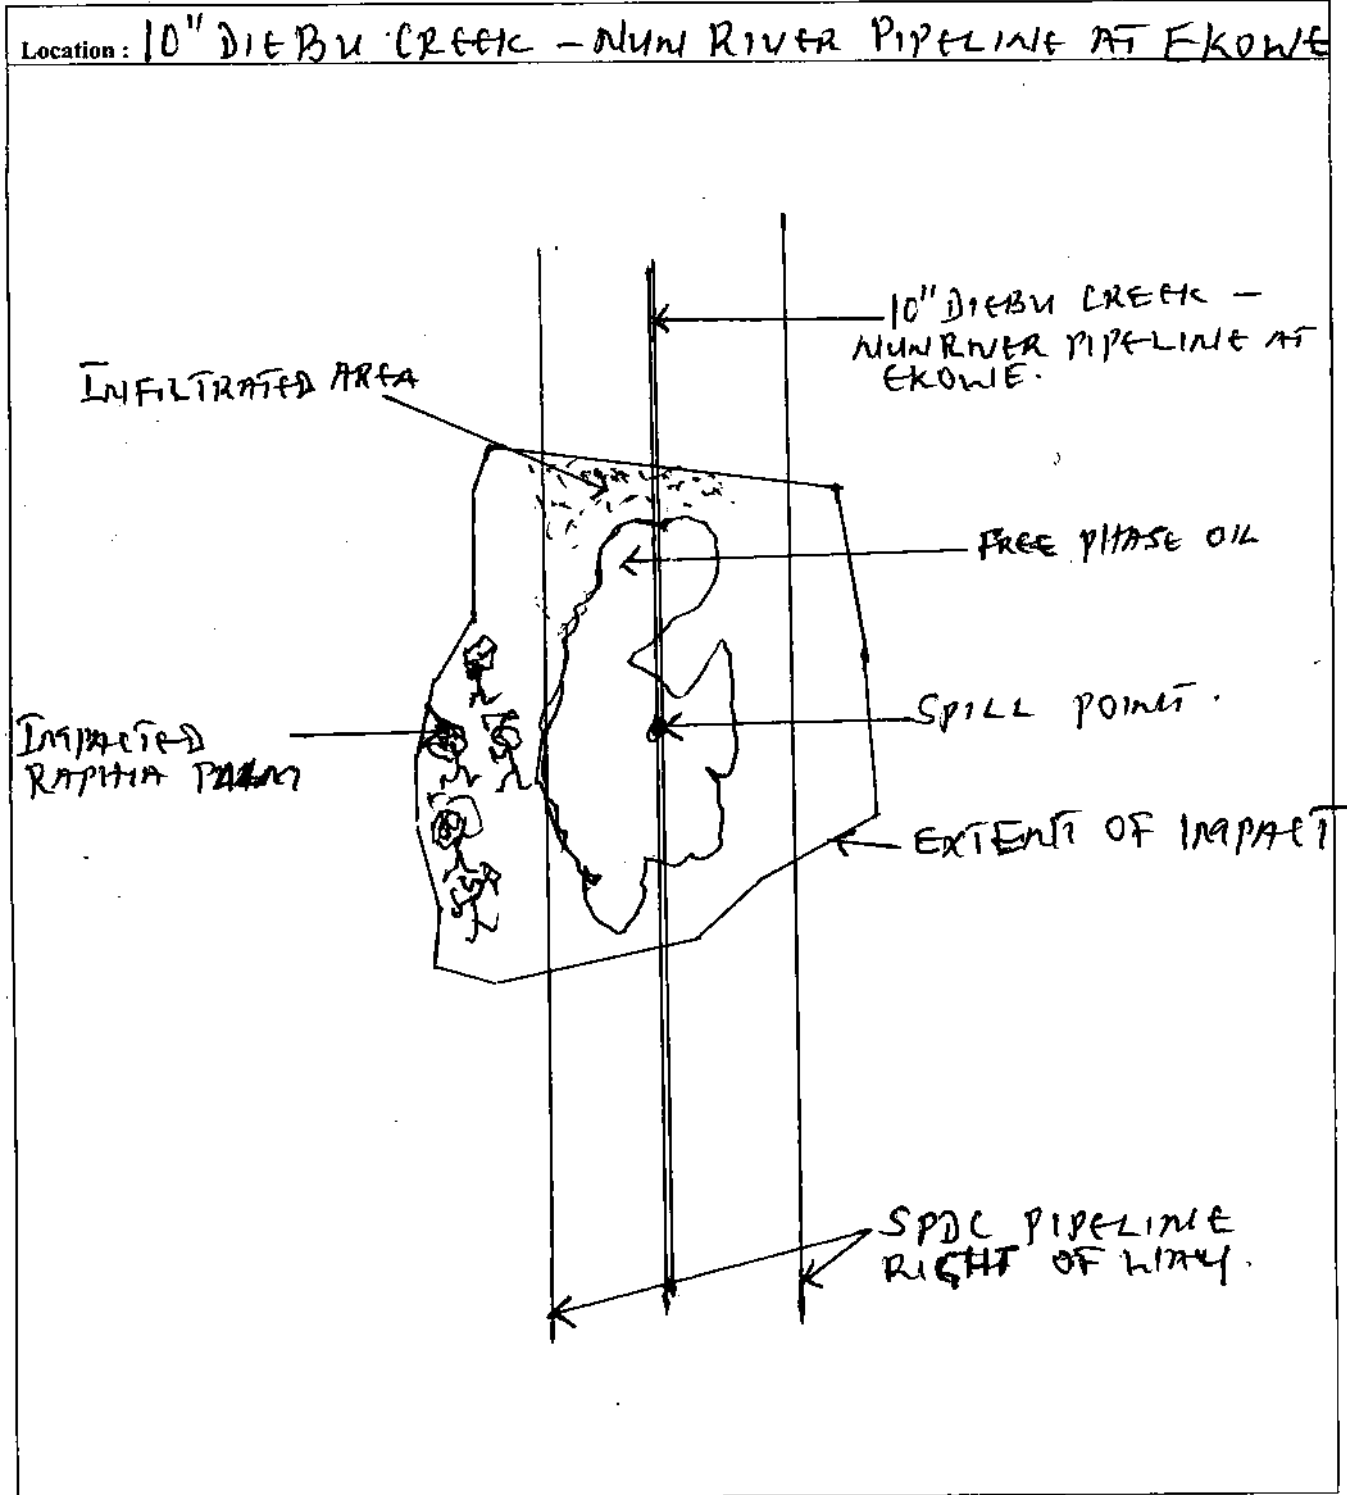 Location : 10" DIEBU CREEK - NUN RIVER PIPELINE AT EKOWE
10" DIEBU CREEK -
NUN RIVER PIPELINE AT
EKOWE.
INFILTRATED AREA
FREE PHASE OIL
SPILL POINT.
IMPACTED
RAPHIA PALM
EXTENT OF IMPACT
SPDC PIPELINE
RIGHT OF WAY.